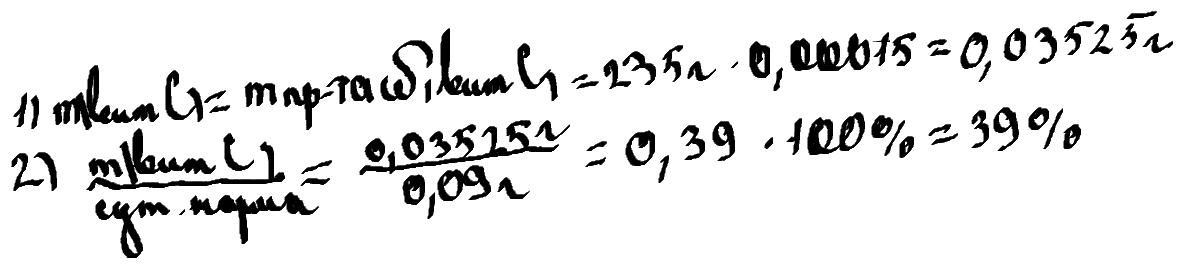 1) m(вит C) = mпр-та · ω(вит C) = 235г · 0,00015 = 0,03525г
2) m(вит C) / сут. норма = 0,03525г / 0,09г = 0,39 · 100% = 39%